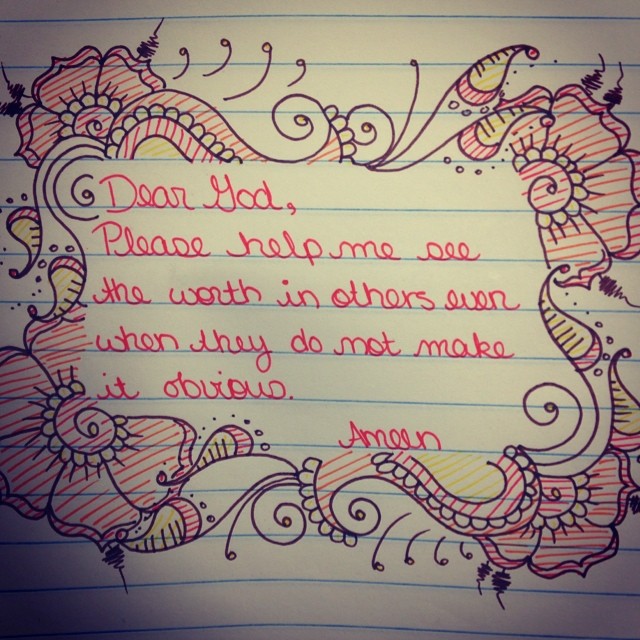 Dear God,
Please help me see
the worth in others even
when they do not make
it obvious.
Ameen